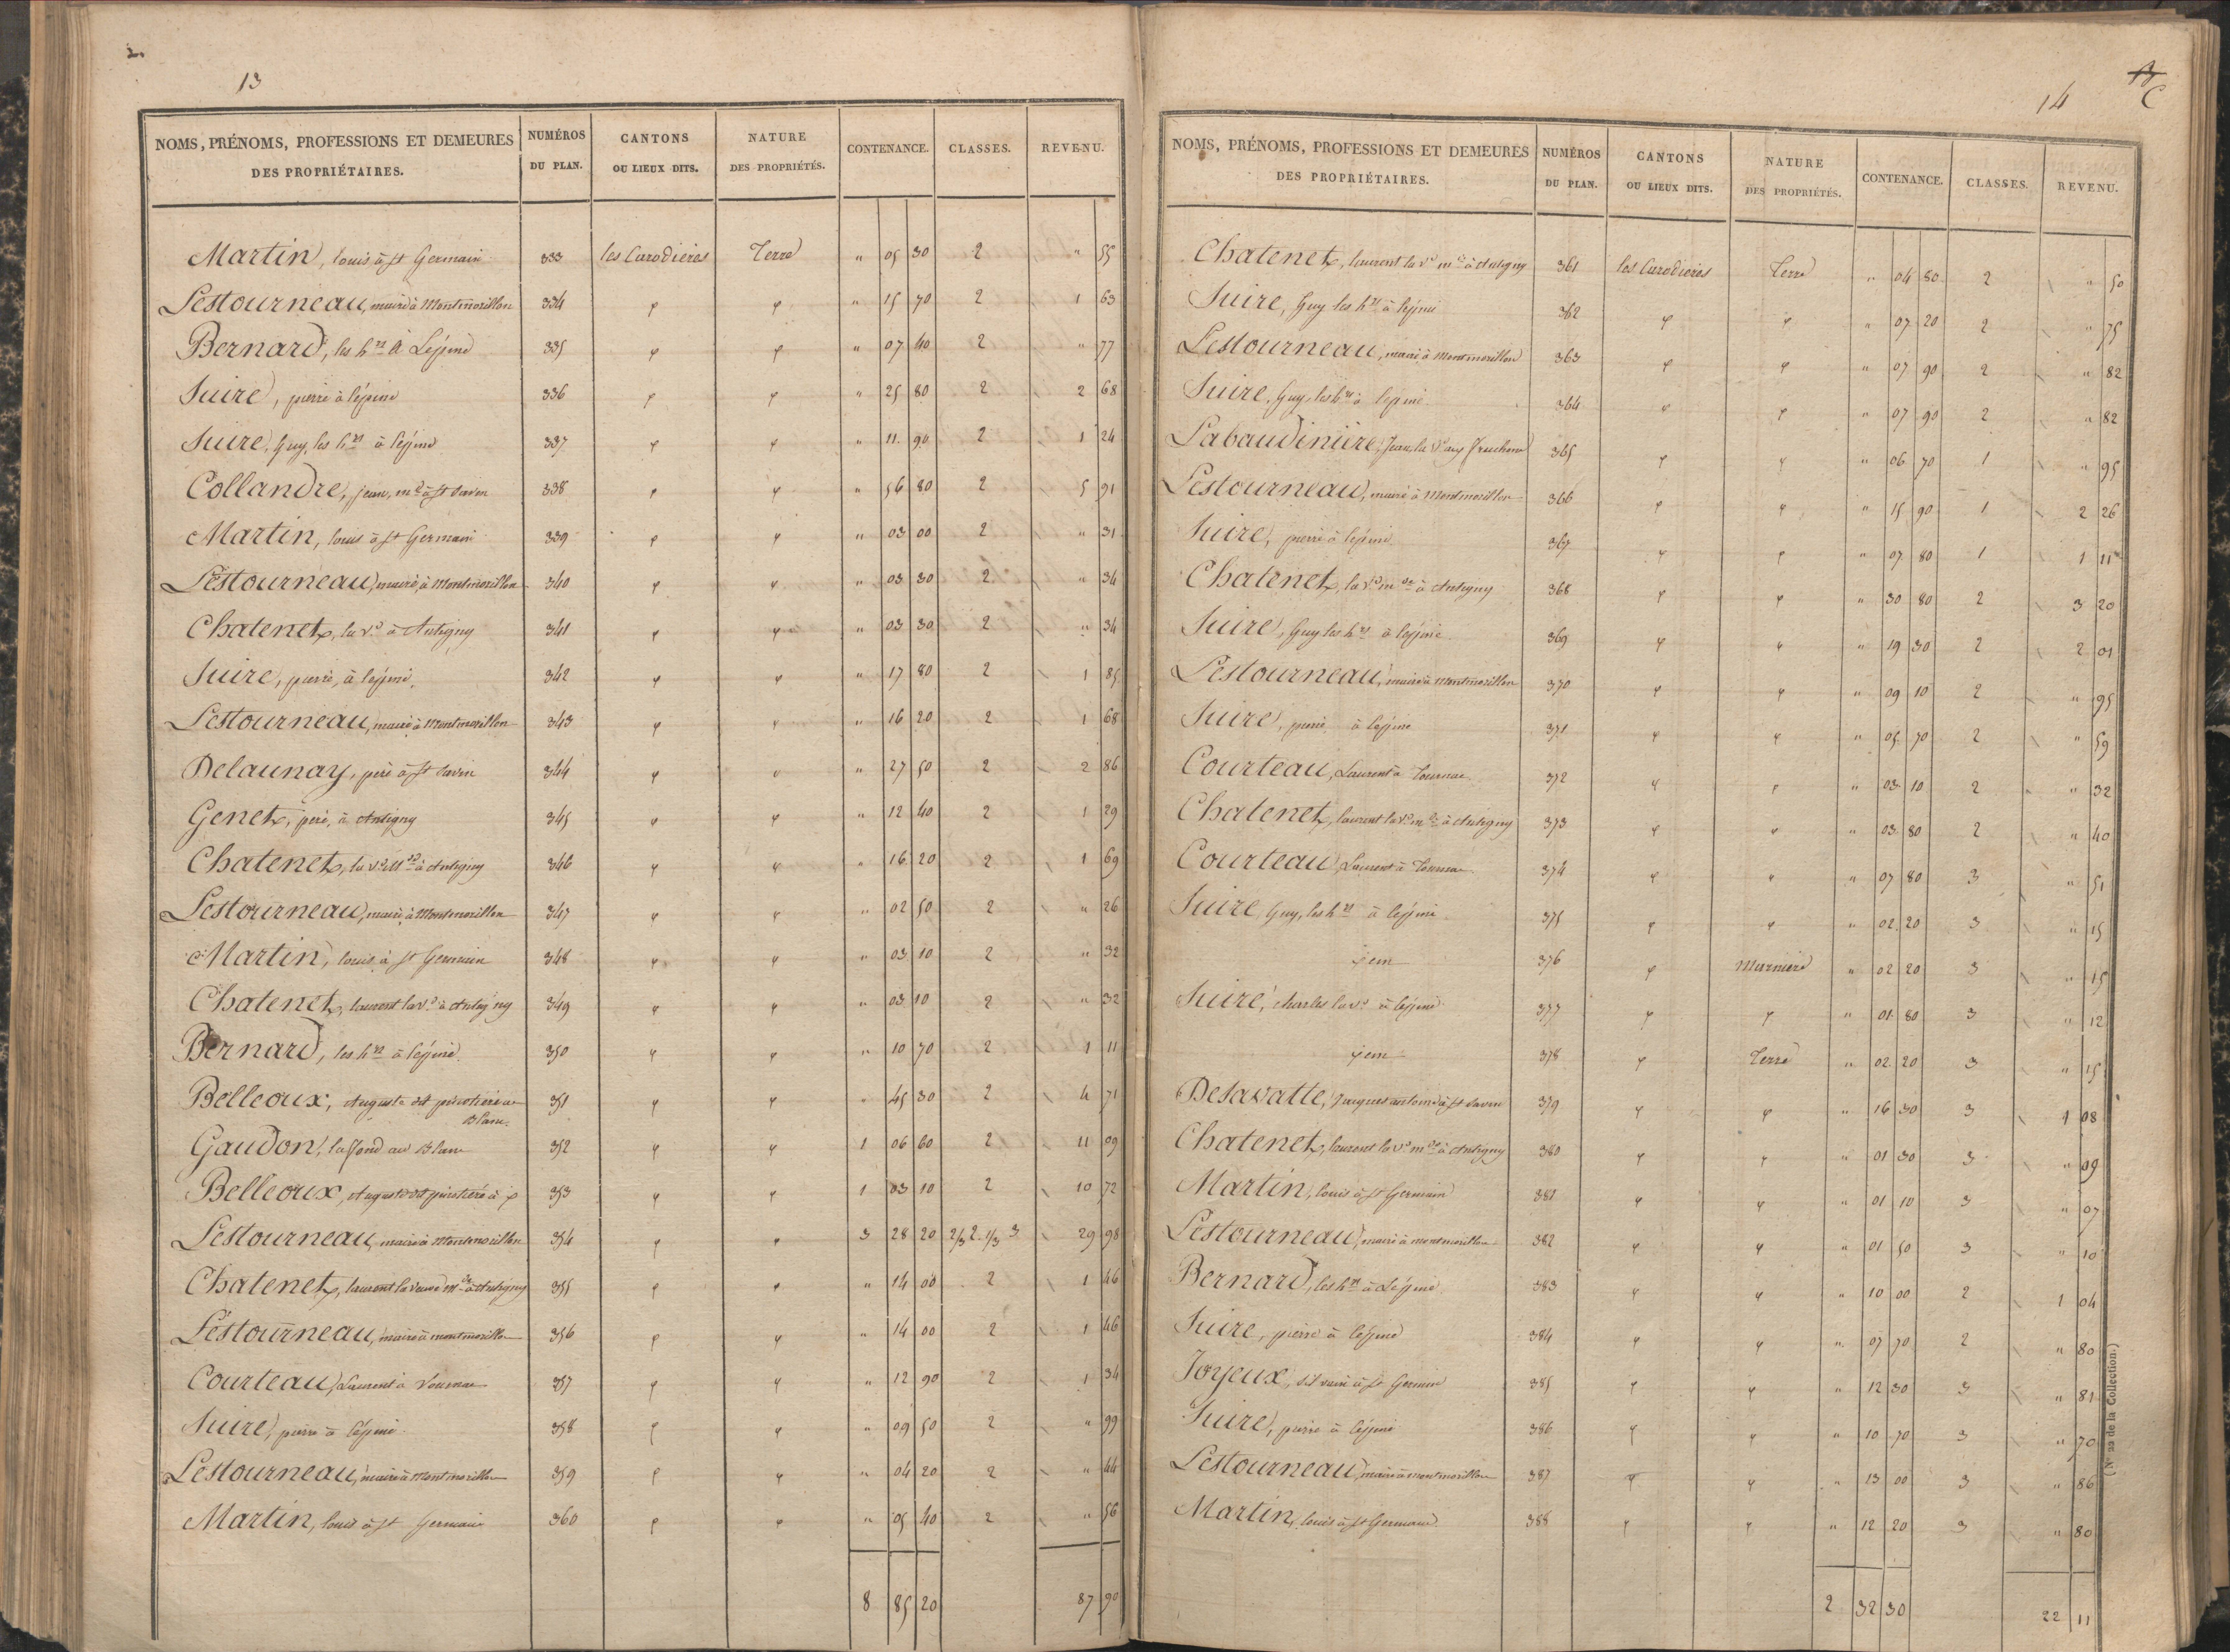 2.
13
NOMS, PRÉNOMS, PROFESSIONS ET DEMEURES DES PROPRIÉTAIRES. NUMÉROS DU PLAN. CANTONS OU LIEUX DITS. NATURE DES PROPRIÉTÉS. CONTENANCE. CLASSES. REVENU.
Martin, louis à St Germain 333 les Carodières Terre " 05 30 2 " 55
Lestourneau, maire à Montmorillon 334 " " " 15 70 2 1 63
Bernard, les hrs à Lépine 335 " " " 07 40 2 " 77
Suire, pierre à lépine 336 " " " 25 80 2 2 68
Suire, Guy, les hrs à lépine 337 " " " 11 90 2 1 24
Collandre, jean, md à St Savin 338 " " " 56 80 2 5 91
Martin, louis à St Germain 339 " " " 03 00 2 " 31
Lestourneau, maire, à Montmorillon 340 " " " 03 30 2 " 34
Chatenet, la ve à Antigny 341 " " " 03 30 2 " 34
Suire, pierre, à lépine, 342 " " " 17 80 2 1 85
Lestourneau, maire à Montmorillon 343 " " " 16 20 2 1 68
Delaunay, père à St Savin 344 " " " 27 50 2 2 86
Genet, père, à Antigny 345 " " " 12 40 2 1 29
Chatenet, la ve Mde à Antigny 346 " " " 16 20 2 1 69
Lestourneau, maire à Montmorillon 347 " " " 02 50 2 " 26
Martin, louis à St Germain 348 " " " 03 10 2 " 32
Chatenet, laurent la ve à Antigny 349 " " " 03 10 2 " 32
Bernard, les hrs à lépine. 350 " " " 10 70 2 1 11
Belleoux, Auguste dit au 351 " " " 45 30 2 4 71
Blanc.
Gaudon, lafond au Blanc 352 " " 1 06 60 2 11 09
Belleoux, Auguste dit à " 353 " " 1 03 10 2 10 72
Lestourneau, maire à Montmorillon 354 " " 3 28 20 2/3 2 1/3 3 29 98
Chatenet, laurent la veuve mde à Antigny 355 " " " 14 00 2 1 46
Lestourneau, maire à montmorillon 356 " " " 14 00 2 1 46
Courteau, Laurent à 357 " " " 12 90 2 1 34
Suire, pierre à lépine 358 " " " 09 50 2 " 99
Lestourneau, maire à Montmorillon 359 " " " 04 20 2 " 44
Martin, louis à St Germain 360 " " " 05 40 2 " 56
8 85 20 87 90
14
C
NOMS, PRÉNOMS, PROFESSIONS ET DEMEURES DES PROPRIÉTAIRES. NUMÉROS DU PLAN. CANTONS OU LIEUX DITS. NATURE DES PROPRIÉTÉS. CONTENANCE. CLASSES. REVENU.
Chatenet, laurent la ve mde à Antigny 361 les Carodières Terre " 04 80 2 " 50
Suire, Guy les hrs à lépine 362 " " " 07 20 2 " 75
Lestourneau, maire à Montmorillon 363 " " " 07 90 2 " 82
Suire, Guy, les hrs à lépine 364 " " " 07 90 2 " 82
Labaudinière, Jean, la ve aux 365 " " " 06 70 1 " 95
Lestourneau, maire à Montmorillon 366 " " " 15 90 1 2 26
Suire, pierre à lépine 367 " " " 07 80 1 1 11
Chatenet, la ve mde à Antigny 368 " " " 30 80 2 3 20
Suire, Guy les hrs à lépine 369 " " " 19 30 2 2 01
Lestourneau, maire à Montmorillon 370 " " " 09 10 2 " 95
Suire, pierre à lépine 371 " " " 05 70 2 " 59
Courteau, Laurent à 372 " " " 03 10 2 " 32
Chatenet, laurent la ve mde à Antigny 373 " " " 03 80 2 " 40
Courteau, Laurent à 374 " " " 07 80 3 " 51
Suire, Guy, les hrs à lépine 375 " " " 02 20 3 " 15
idem 376 " Marnière " 02 20 3 " 15
Suire, charles la ve à lépine 377 " " " 01 80 3 " 12
idem 378 " Terre " 02 20 3 " 15
Desavatte, Jacques antoine à St Savin 379 " " " 16 30 3 1 08
Chatenet, laurent la ve mde à Antigny 380 " " " 01 30 3 " 09
Martin, louis à St Germain 381 " " " 01 10 3 " 07
Lestourneau, maire à montmorillon 382 " " " 01 50 3 " 10
Bernard, les hrs à Lépine 383 " " " 10 00 2 1 04
Suire, pierre à lépine 384 " " " 07 70 2 " 80
Joyeux, à St Germain 385 " " " 12 30 3 " 81
Suire, pierre à lépine 386 " " " 10 70 3 " 70
Lestourneau, maire à montmorillon 387 " " " 13 00 3 " 86
Martin, louis à St Germain 388 " " " 12 20 3 " 80
2 32 30 22 11
(N° 22 de la Collection.)